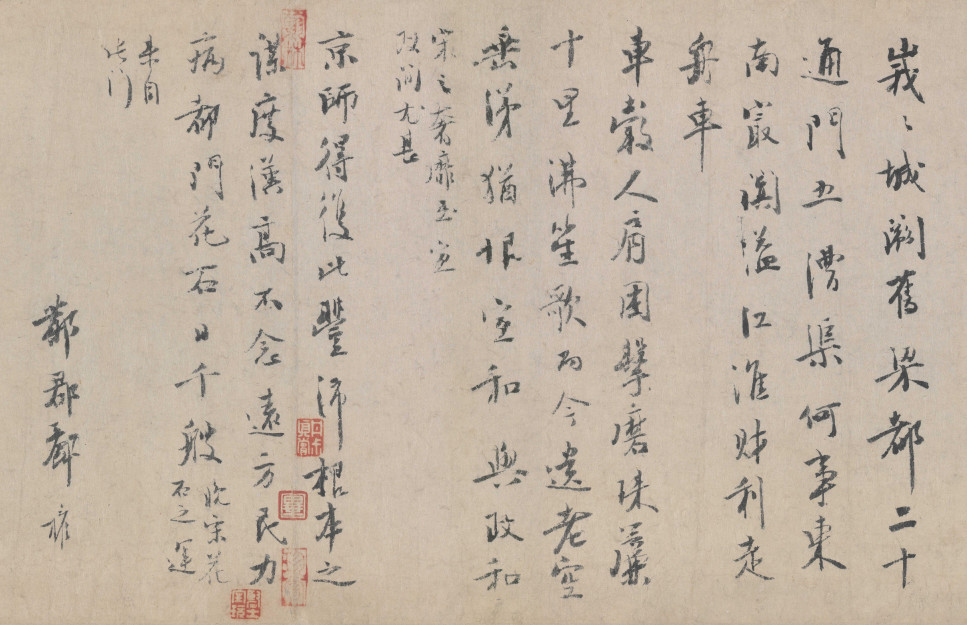 峩〻城闕舊梁都二十
通門五漕渠何事東
南最闐溢江淮財利走
舟車
車轂人肩困擊磨珠簾
十里沸笙歌而今遺老空
垂涕猶恨宣和與政和
宋之奢靡至宣
政間尤甚
京師得復此豐沛根本之
謀度漢高不念遠方民力
病都門花石日千艘晚宋花
石之運
來自
此門
鄴郡酈權